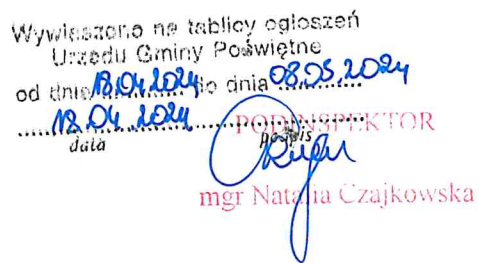 Wywieszono na tablicy ogłoszeń
Urzędu Gminy Poświętne
od dnia 18.04.2024 do dnia 08.05.2024
18.04.2024
PODINSPEKTOR
data podpis
mgr Natalia Czajkowska